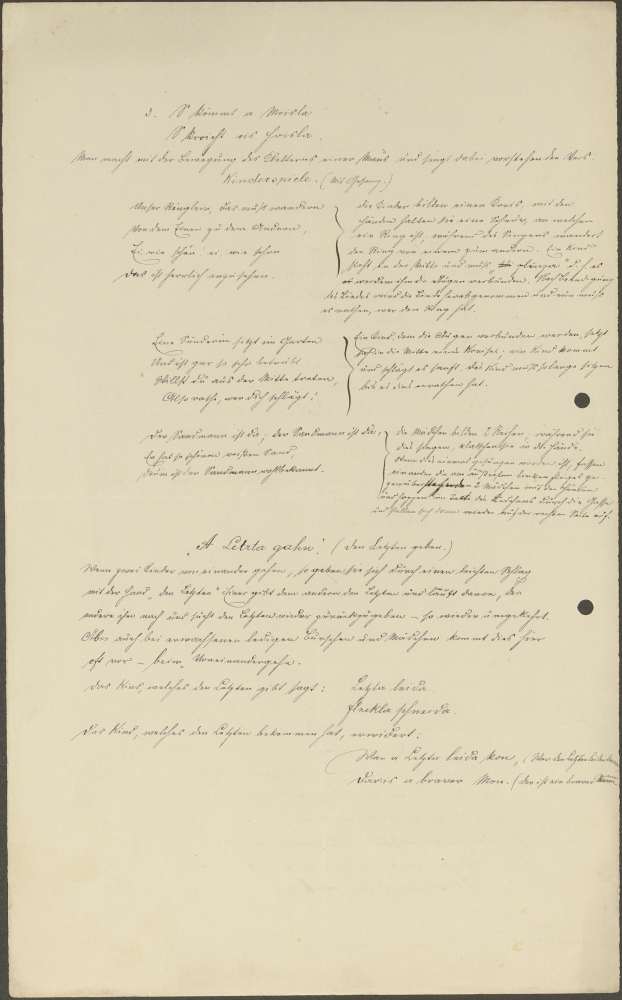 2. S' kommt a Meisla
S' kricht eis Heisla.
Man macht mit der Bewegung des Kletterns einer Maus und singt dabei, vorstehenden Vers.
Kinderspiele. (Mit Gesang.)
Unser Ringlein, das muß wandern
Von dem Einen zu dem Andern,
Ei wie schön! ei, wie schön
Das ist herrlich anzusehen.
Die Kinder bilden einen Kreis, mit den
Händen halten sie eine Schnur, an welcher
ein Ring ist, während des Singens wandert
der Ring von einem zum andern. Ein Kind
steht in der Mitte und muß " d. h. es
werden ihm die Augen verbunden. Nach Beendigung
des Liedes wird die Binde herabgenommen und nun muß
es rathen, wer den Ring hat.
Eine Sünderin sitzt im Garten
Und ist gar so sehr betrübt
Willst du aus der Mitte treten,
Also rathe, wer dich schlägt!
Ein Kind, dem die Augen verbunden werden, sitzt
in der Mitte eines Kreises, ein Kind kommt
und schlägt es sanft. Das Kind muß so lange sitzen
bis es dies errathen hat.
Der Sandmann ist da, der Sandmann ist da,
Er hat so schönen weißen Sand,
Drum ist der Sandmann wohlbekannt.
Die Mädchen bilden 2 Reihen, während sie
das singen, klatschen sie in die Hände.
Wenn dies einmal gesungen worden ist, fassen
einander die am äußersten linken Flügel ge-
genüberstehenden 2 Mädchen mit den Händen
und hopsen im Takte des Liedchens durch die Gasse
und stellen sich dann wieder auf der rechten Seite auf.
„A Letzta gahn". (Den Letzten geben.)
Wenn zwei Kinder von einander gehen, so geben sie sich durch einen leichten Schlag
mit der Hand „den Letzten". Einer gibt dem andern den Letzten und läuft davon, der
andere ihm nach und sucht den Letzten wieder zurückzugeben – so wieder umgekehrt.
Aber auch bei erwachsenen ledigen Burschen und Mädchen kommt dies hier
oft vor – beim Voneinandergehn.
Das Kind, welches den Letzten gibt sagt: Letzta leida
Fleckla schneida.
Das Kind, welches den Letzten bekommen hat, erwidert:
War a Letzta leida kon, (Wer den Letzten leiden kann
Dar is a braver Mon. (der ist ein braver Mann.)